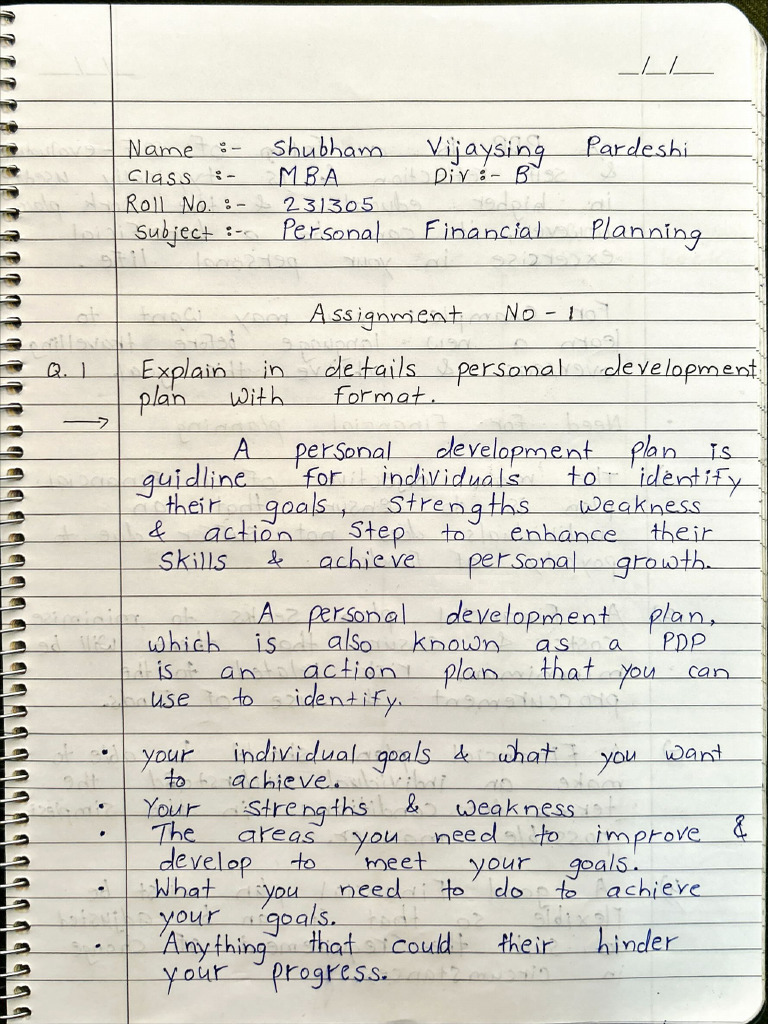 _/_/__
Name :- Shubham Vijaysing Pardeshi
Class :- MBA Div :- B
Roll No. :- 231305
Subject :- Personal Financial Planning
Assignment No - 1
Q. 1 Explain in details personal development
plan with format.
→
A personal development plan is
guidline for individuals to identify
their goals, strengths weakness
& action step to enhance their
skills & achieve personal growth.
A personal development plan,
which is also known as a PDP
is an action plan that you can
use to identify.
• your individual goals & what you want
to achieve.
• Your strengths & weakness
• The areas you need to improve &
develop to meet your goals.
• What you need to do to achieve
your goals.
• Anything that could their hinder
your progress.